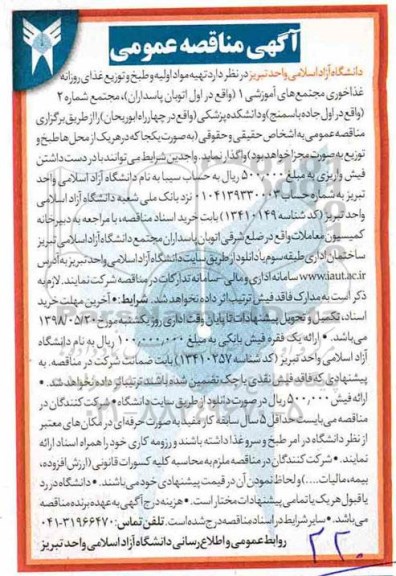 آگهی مناقصه عمومی
دانشگاه آزاد اسلامی واحد تبریز در نظر دارد تهیه مواد اولیه و طبخ و توزیع غذای روزانه
غذاخوری مجتمع‌های آموزشی ۱ (واقع در اول اتوبان پاسداران)، مجتمع شماره ۲
(واقع در اول جاده باسمنج) و دانشکده پزشکی (واقع در چهارراه ابوریحان) را از طریق برگزاری
مناقصه عمومی به اشخاص حقیقی و حقوقی (به صورت یکجا که در هر یک از محل‌ها طبخ و
توزیع به صورت مجزا خواهد بود) واگذار نماید. واجدین شرایط می‌توانند با در دست داشتن
فیش واریزی به مبلغ ۵۰۰/۰۰۰ ریال به حساب سیبا به نام دانشگاه آزاد اسلامی واحد
تبریز به شماره حساب نزد بانک ملی شعبه دانشگاه آزاد اسلامی
واحد تبریز (کد شناسه ۱۳۴۱۰۱۴۹) بابت خرید اسناد مناقصه، با مراجعه به دبیرخانه
کمیسیون معاملات واقع در ضلع شرقی اتوبان پاسداران مجتمع دانشگاه آزاد اسلامی تبریز
ساختمان اداری طبقه سوم یا دانلود از طریق سایت دانشگاه آزاد اسلامی واحد تبریز به آدرس
www.iaut.ac.ir سامانه اداری و مالی - سامانه تدارکات در مناقصه شرکت نمایند. لازم به
ذکر است به مدارک فاقد فیش ترتیب اثر داده نخواهد شد. شرایط: • آخرین مهلت خرید
اسناد، تکمیل و تحویل پیشنهادات تا پایان وقت اداری روز یکشنبه مورخ ۱۳۹۸/۰۵/۲۰
می‌باشد. • ارائه یک فقره فیش بانکی به مبلغ ۱۰۰/۰۰۰/۰۰۰ ریال به نام دانشگاه
آزاد اسلامی واحد تبریز (کد شناسه ۱۳۴۱۰۲۵۷) بابت ضمانت شرکت در مناقصه. به
پیشنهادی که فاقد فیش نقدی یا چک تضمین شده باشند ترتیب اثر داده نخواهد شد. •
ارائه فیش ۵۰۰/۰۰۰ ریال در صورت دانلود از طریق سایت دانشگاه • شرکت کنندگان در
مناقصه می‌بایست حداقل ۵ سال سابقه کار مفید به صورت حرفه‌ای در مکان‌های معتبر
از نظر دانشگاه در امر طبخ و سرو غذا داشته باشند و رزومه کاری خود را همراه اسناد ارائه
نمایند. • شرکت کنندگان در مناقصه ملزم به محاسبه کلیه کسورات قانونی (ارزش افزوده،
بیمه، مالیات....) و لحاظ نمودن آن در قیمت پیشنهادی خود می‌باشند. • دانشگاه در رد
یا قبول هر یک یا تمامی پیشنهادات مختار است. • هزینه درج آگهی به عهده برنده مناقصه
می‌باشد. • سایر شرایط در اسناد مناقصه درج شده است. تلفن تماس: ۳۱۹۶۶۴۷۰-۰۴۱
روابط عمومی و اطلاع رسانی دانشگاه آزاد اسلامی واحد تبریز